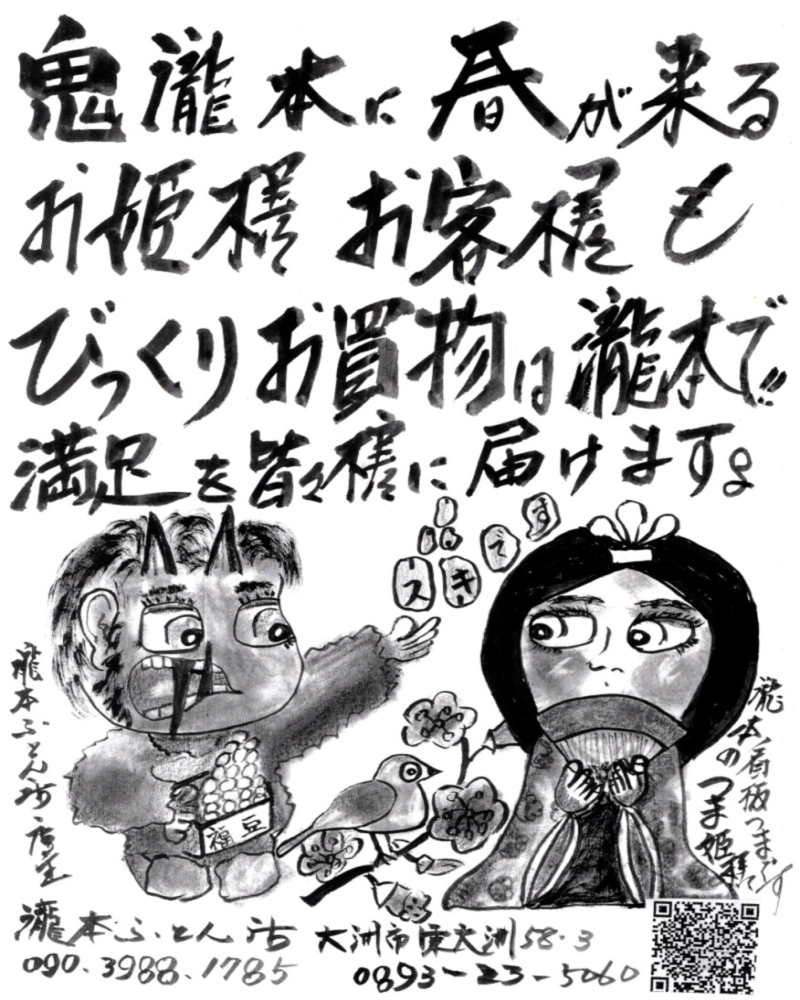 鬼瀧本に春が来る
お姫様 お客様も
びっくりお買物は瀧本で!!
満足を皆々様に届けます。
スキです
福豆
瀧本ふとん坊
瀧本看板つま
瀧本のつま姫様
瀧本ふとん店 大洲市東大洲58-3
090.3988.1785 0893-23-5060